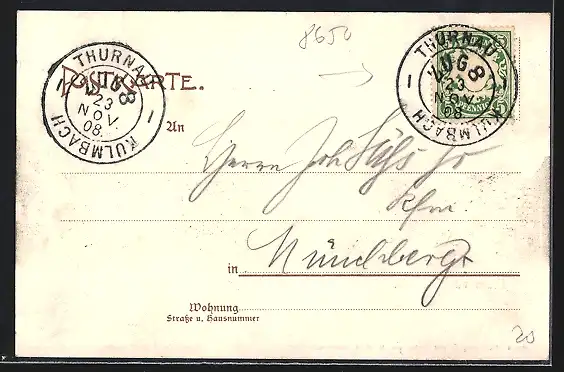 8650
POSTKARTE.
THURNAU
ZUG 8
23
NOV
08.
KULMBACH
THURNAU
ZUG 8
23
NOV
08
KULMBACH
5
An
Herrn Joh
in Münchberg
Wohnung
Straße u. Hausnummer
20